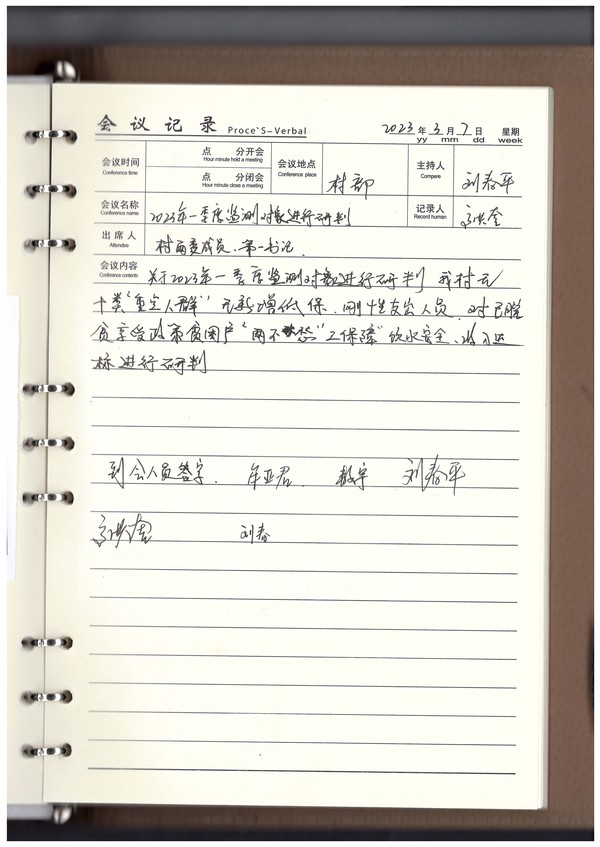 会议记录 Proce`S-Verbal 2023年3月7日 星期
yy mm dd week
会议时间 点 分开会 会议地点 村部 主持人 刘春平
Conference time Hour minute hold a meeting Conference place Compere
点 分闭会
Hour minute close a meeting
会议名称 2023年一季度监测对象进行研判 记录人
Conference name Record human
出席人 村两委成员、第一书记
Attendee
会议内容 关于2023年一季度监测对象进行研判 我村无
Conference contents
十类"重点人群" 无新增低保、刚性支出人员、对已脱
贫享受政策贫困户"两不愁"三保障"饮水安全、
标进行研判
到会人员签字、牟亚君、 刘春平
刘春